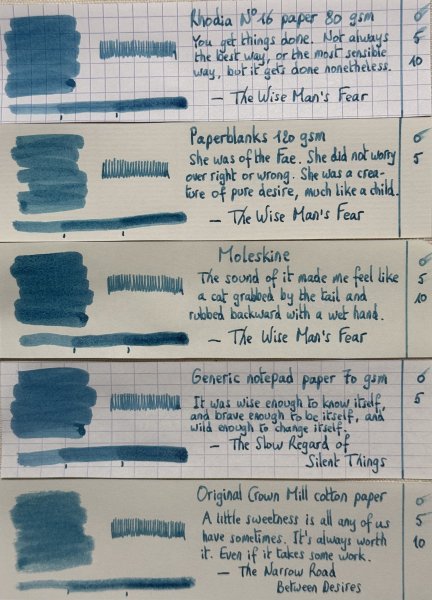 Rhodia N°16 paper 80 gsm
You get things done. Not always
the best way, or the most sensible
way, but it gets done nonetheless.
— The Wise Man's Fear
0
5
10
Paperblanks 120 gsm
She was of the Fae. She did not worry
over right or wrong. She was a crea-
ture of pure desire, much like a child.
— The Wise Man's Fear
0
5
Moleskine
The sound of it made me feel like
a cat grabbed by the tail and
rubbed backward with a wet hand.
— The Wise Man's Fear
0
5
10
Generic notepad paper 70 gsm
It was wise enough to know itself,
and brave enough to be itself, and
wild enough to change itself.
— The Slow Regard of
Silent Things
0
5
Original Crown Mill cotton paper
A little sweetness is all any of us
have sometimes. It's always worth
it. Even if it takes some work.
— The Narrow Road
Between Desires
0
5
10